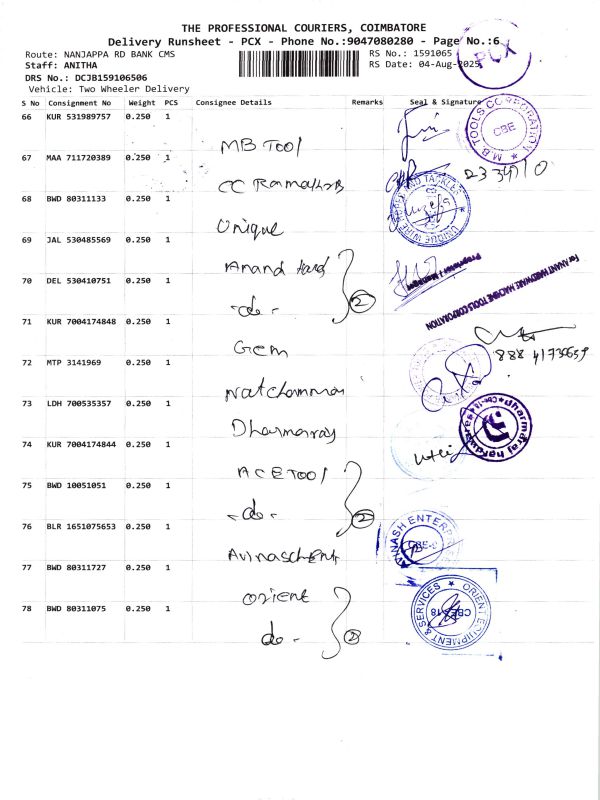 THE PROFESSIONAL COURIERS, COIMBATORE
Delivery Runsheet - PCX - Phone No.:9047080280 - Page No.:6
PCX
Route: NANJAPPA RD BANK CMS RS No.: 1591065
Staff: ANITHA RS Date: 04-Aug-2025
DRS No.: DCJB159106506
Vehicle: Two Wheeler Delivery
S No Consignment No Weight PCS Consignee Details Remarks Seal & Signature
66 KUR 531989757 0.250 1
MB TOOl
M B TOOLS CORPORATION ★ CBE
67 MAA 711720389 0.250 1
CC
68 BWD 80311133 0.250 1
Unique
69 JAL 530485569 0.250 1
Anand
For ANANT HARDWARE MACHINE TOOLS CORPORATION
70 DEL 530410751 0.250 1
-do- 2
71 KUR 7004174848 0.250 1
Gem
72 MTP 3141969 0.250 1
73 LDH 700535357 0.250 1
Dharmaraj
dharmaraj hardwares
74 KUR 7004174844 0.250 1
ACE TOOl
75 BWD 10051051 0.250 1
-do- 2
76 BLR 1651075653 0.250 1
AVINASH ENTERPRISES
77 BWD 80311727 0.250 1
orient
ORIENT EQUIPMENT & SERVICES ★ CBE-18
78 BWD 80311075 0.250 1
do- 2